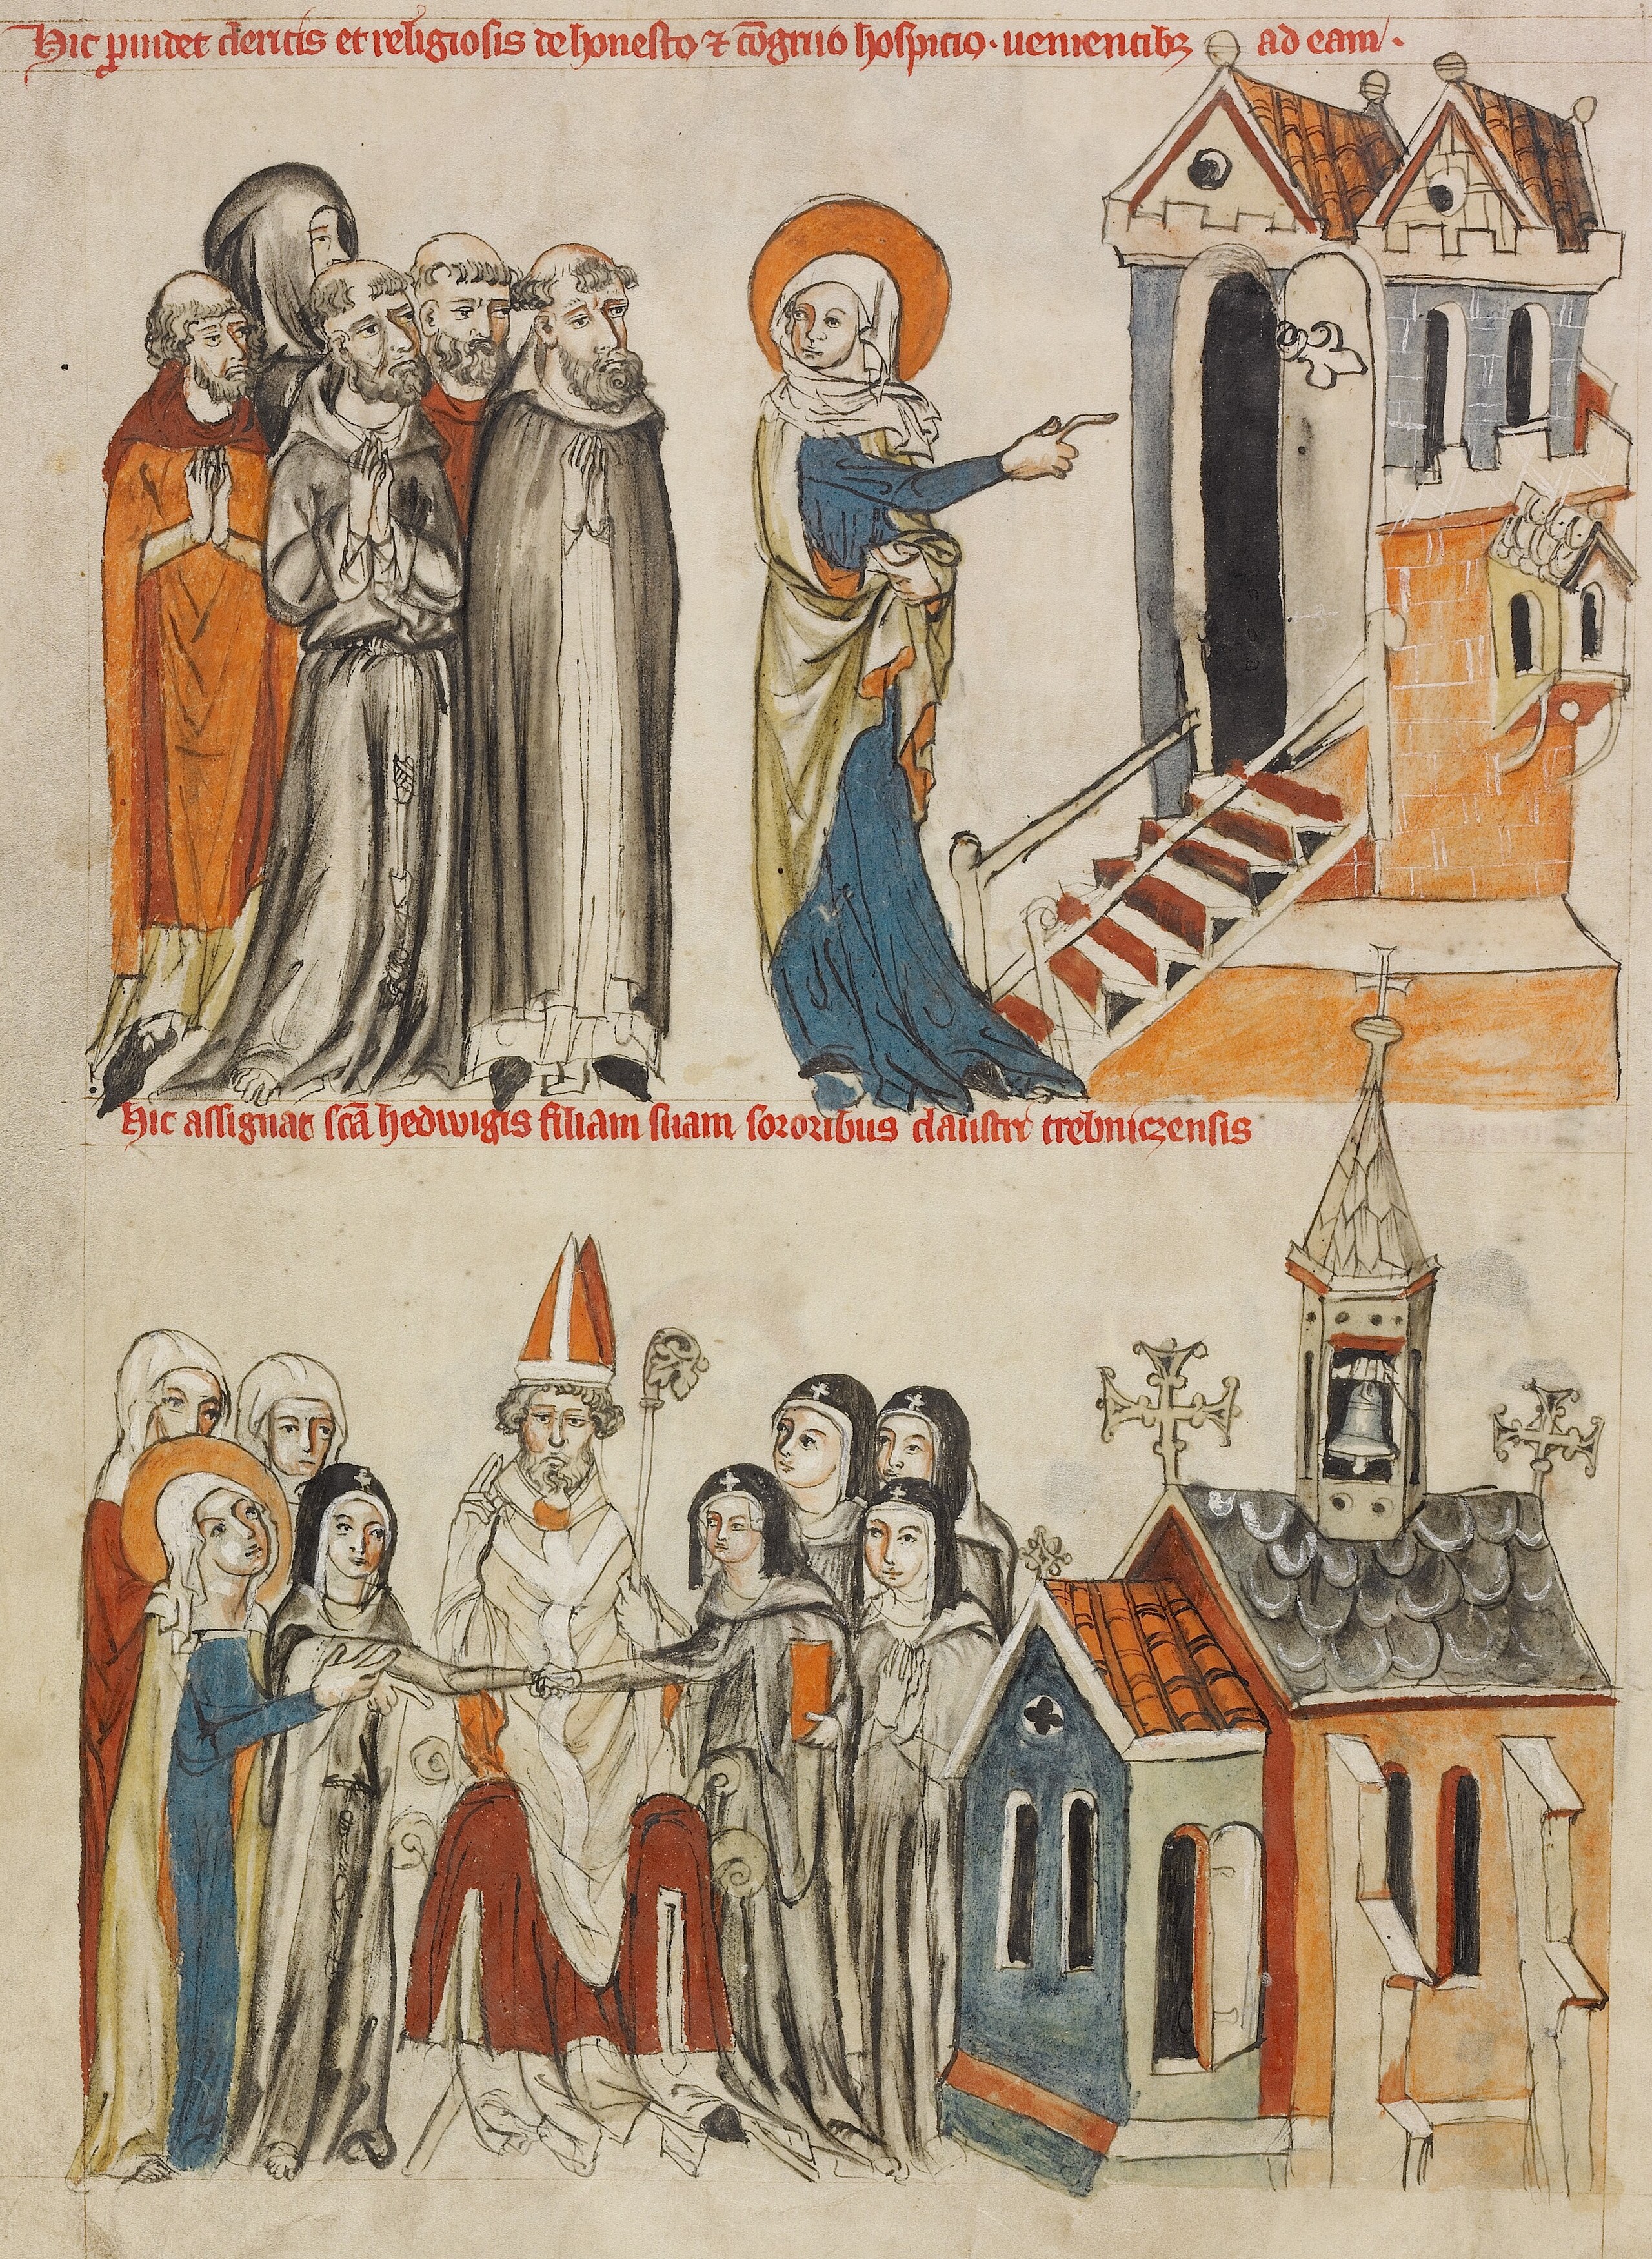 Hic ꝓuidet clericis et religiosis de honesto ⁊ cōgruo hospicio · uenientibꝫ ad eam ·
Hic assignat sc̄a hedwigis filiam suam sororibus claustri trebniczensis